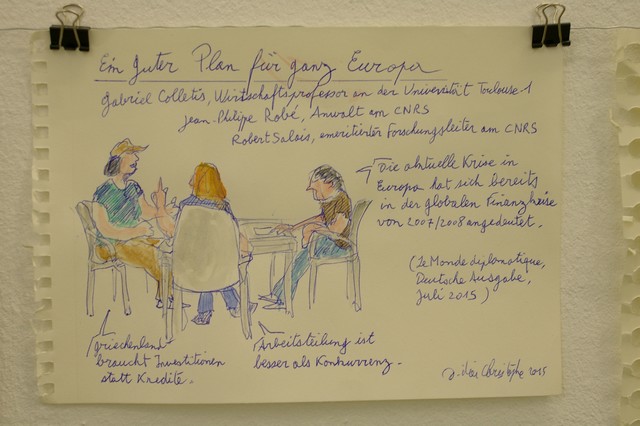 Ein guter Plan für ganz Europa
Gabriel Colletis, Wirtschaftsprofessor an der Universität Toulouse 1
Jean-Philippe Robé, Anwalt am CNRS
Robert Salais, emeritierter Forschungsleiter am CNRS
Die aktuelle Krise in
Europa hat sich bereits
in der globalen Finanzkrise
von 2007/2008 angedeutet.
(Le Monde diplomatique,
Deutsche Ausgabe,
Juli 2015)
Griechenland
braucht Investitionen
statt Kredite.
Arbeitsteilung ist
besser als Konkurrenz.
Christophe 2015